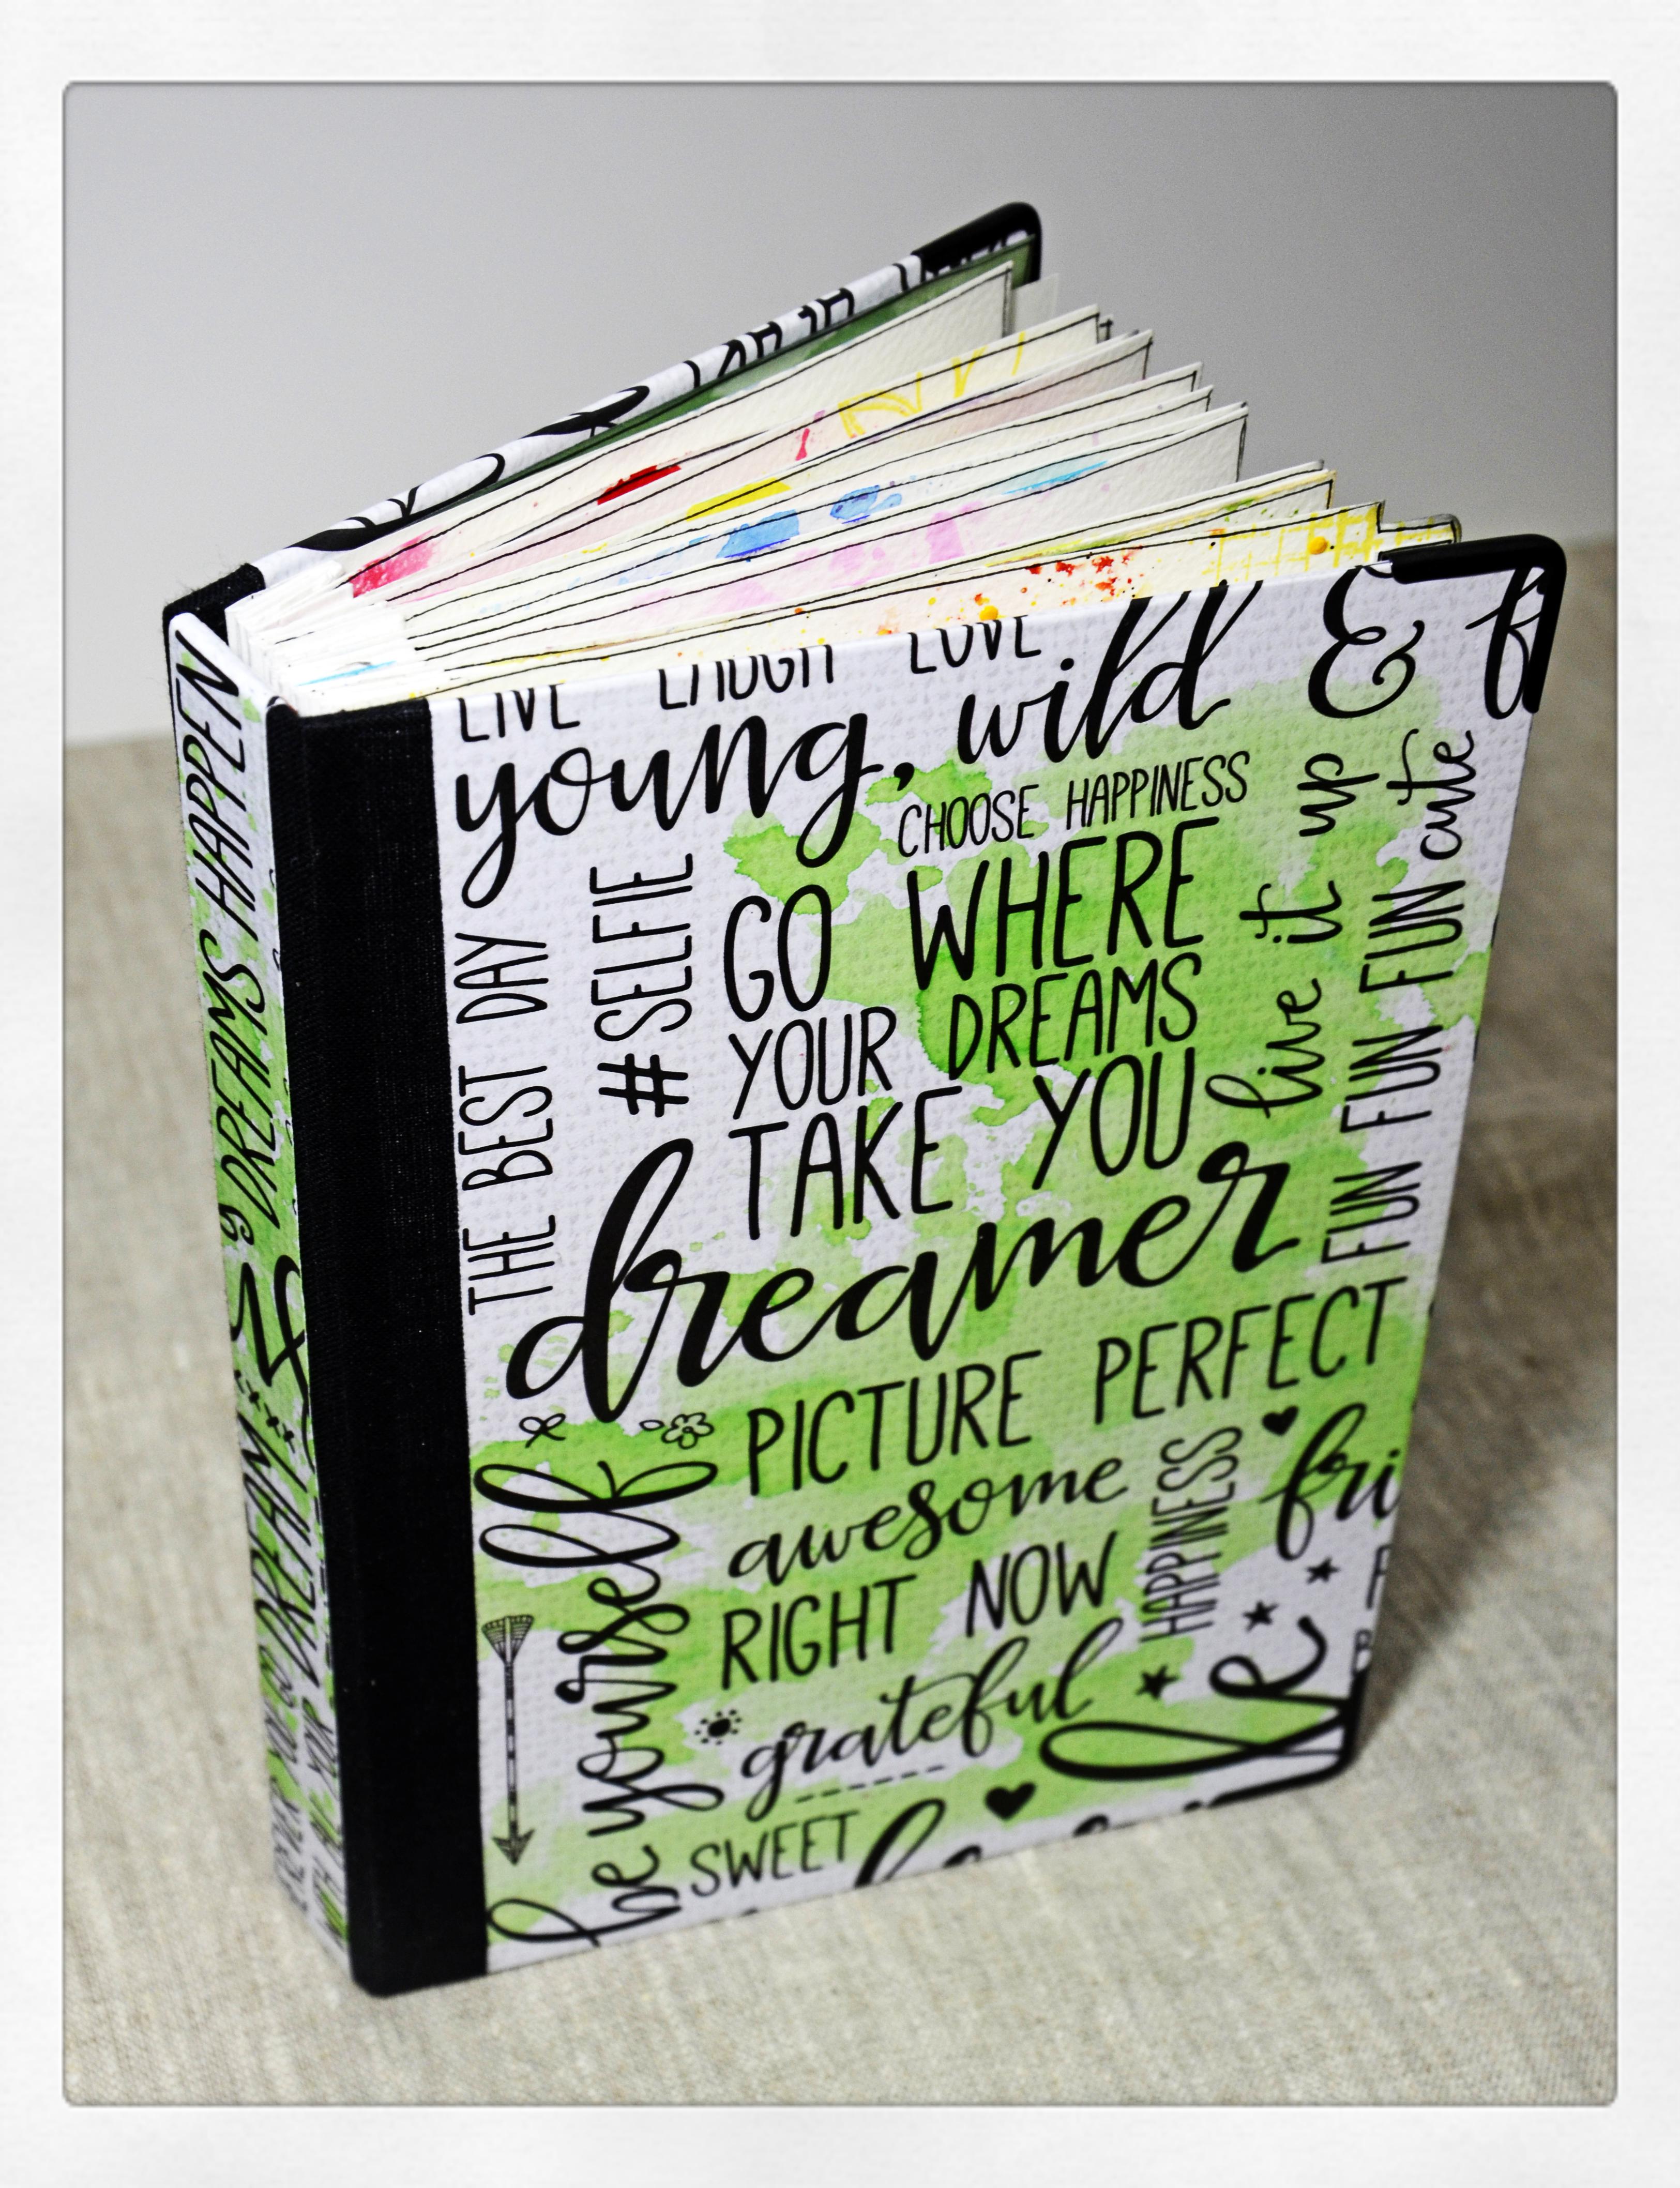 LIVE LAUGH LOVE
young, wild &
CHOOSE HAPPINESS
THE BEST DAY
#SELFIE
GO WHERE
YOUR DREAMS
TAKE YOU
live it up
FUN FUN FUN cute
dreamer
PICTURE PERFECT
be yourself
awesome
RIGHT NOW
HAPPINESS
grateful
SWEET
DREAMS HAPPEN
DREAM